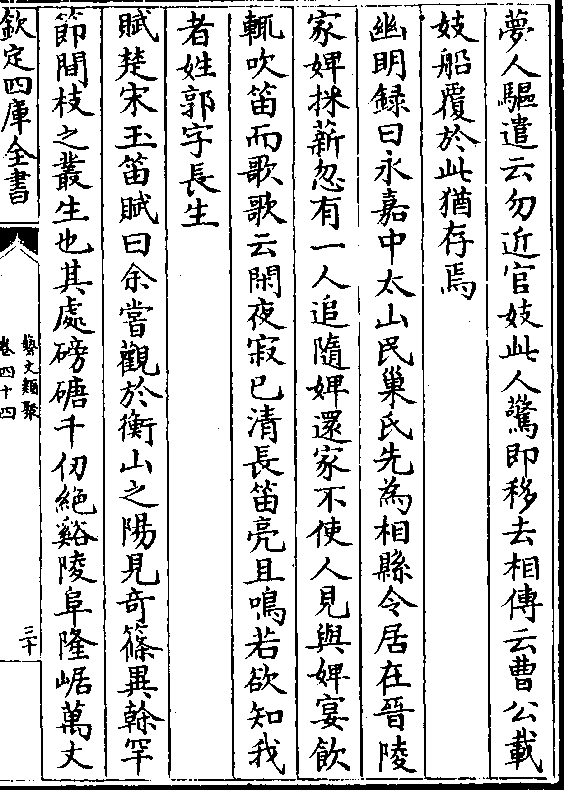 夢人驅遣云勿近官妓此人驚即移去相傳云曹公載
妓船覆於此猶存焉
幽明録曰永嘉中太山民巢氏先為相縣令居在晉陵
家婢採薪忽有一人追隨婢還家不使人見與婢宴飲
輒吹笛而歌歌云閑夜寂已清長笛亮且鳴若欲知我
者姓郭字長生
賦楚宋玉笛賦曰余嘗觀於衡山之陽見奇篠異榦罕
節間枝之叢生也其處磅磄千仞絶谿陵阜隆崛萬丈
欽定四庫全書
藝文類聚
卷四十四
三十